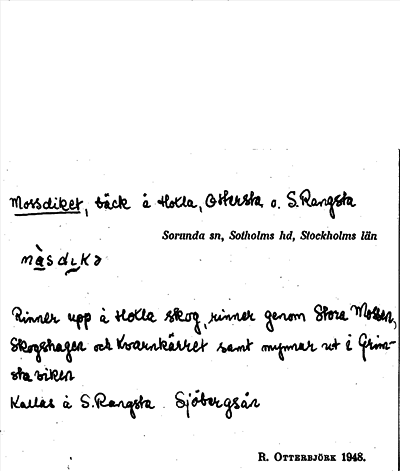 Mossdiket, bäck å Hoxla, Ottersta o. S. Rangsta
Sorunda sn, Sotholms hd, Stockholms län
Rinner upp å Hoxla skog, rinner genom Stora Mossen,
Skogshagen och Kvarnkärret samt mynnar ut i Grim-
sta viken
Kallas å S. Rangsta Sjöbergsån
R. OTTERBJÖRK 1948.